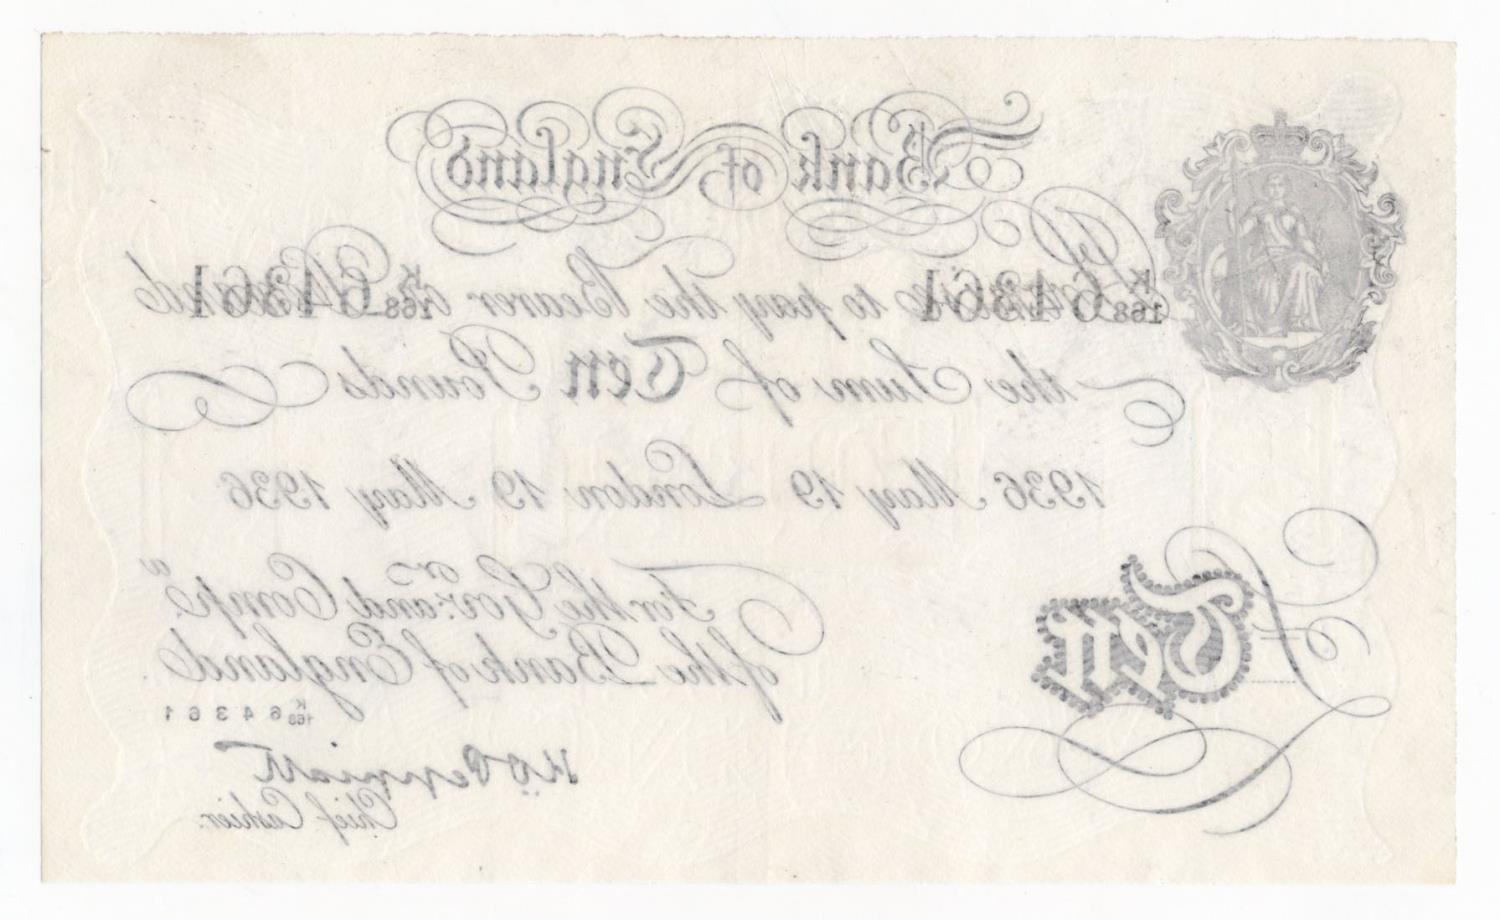 Bank of England
Promise to pay the Bearer on Demand
K/168 64361 K/168 64361
the Sum of Ten Pounds
1936 May 19 London 19 May 1936
For the Govr. and Compa.
of the Bank of England.
Ten
K/168 64361
K O Peppiatt
Chief Cashier.